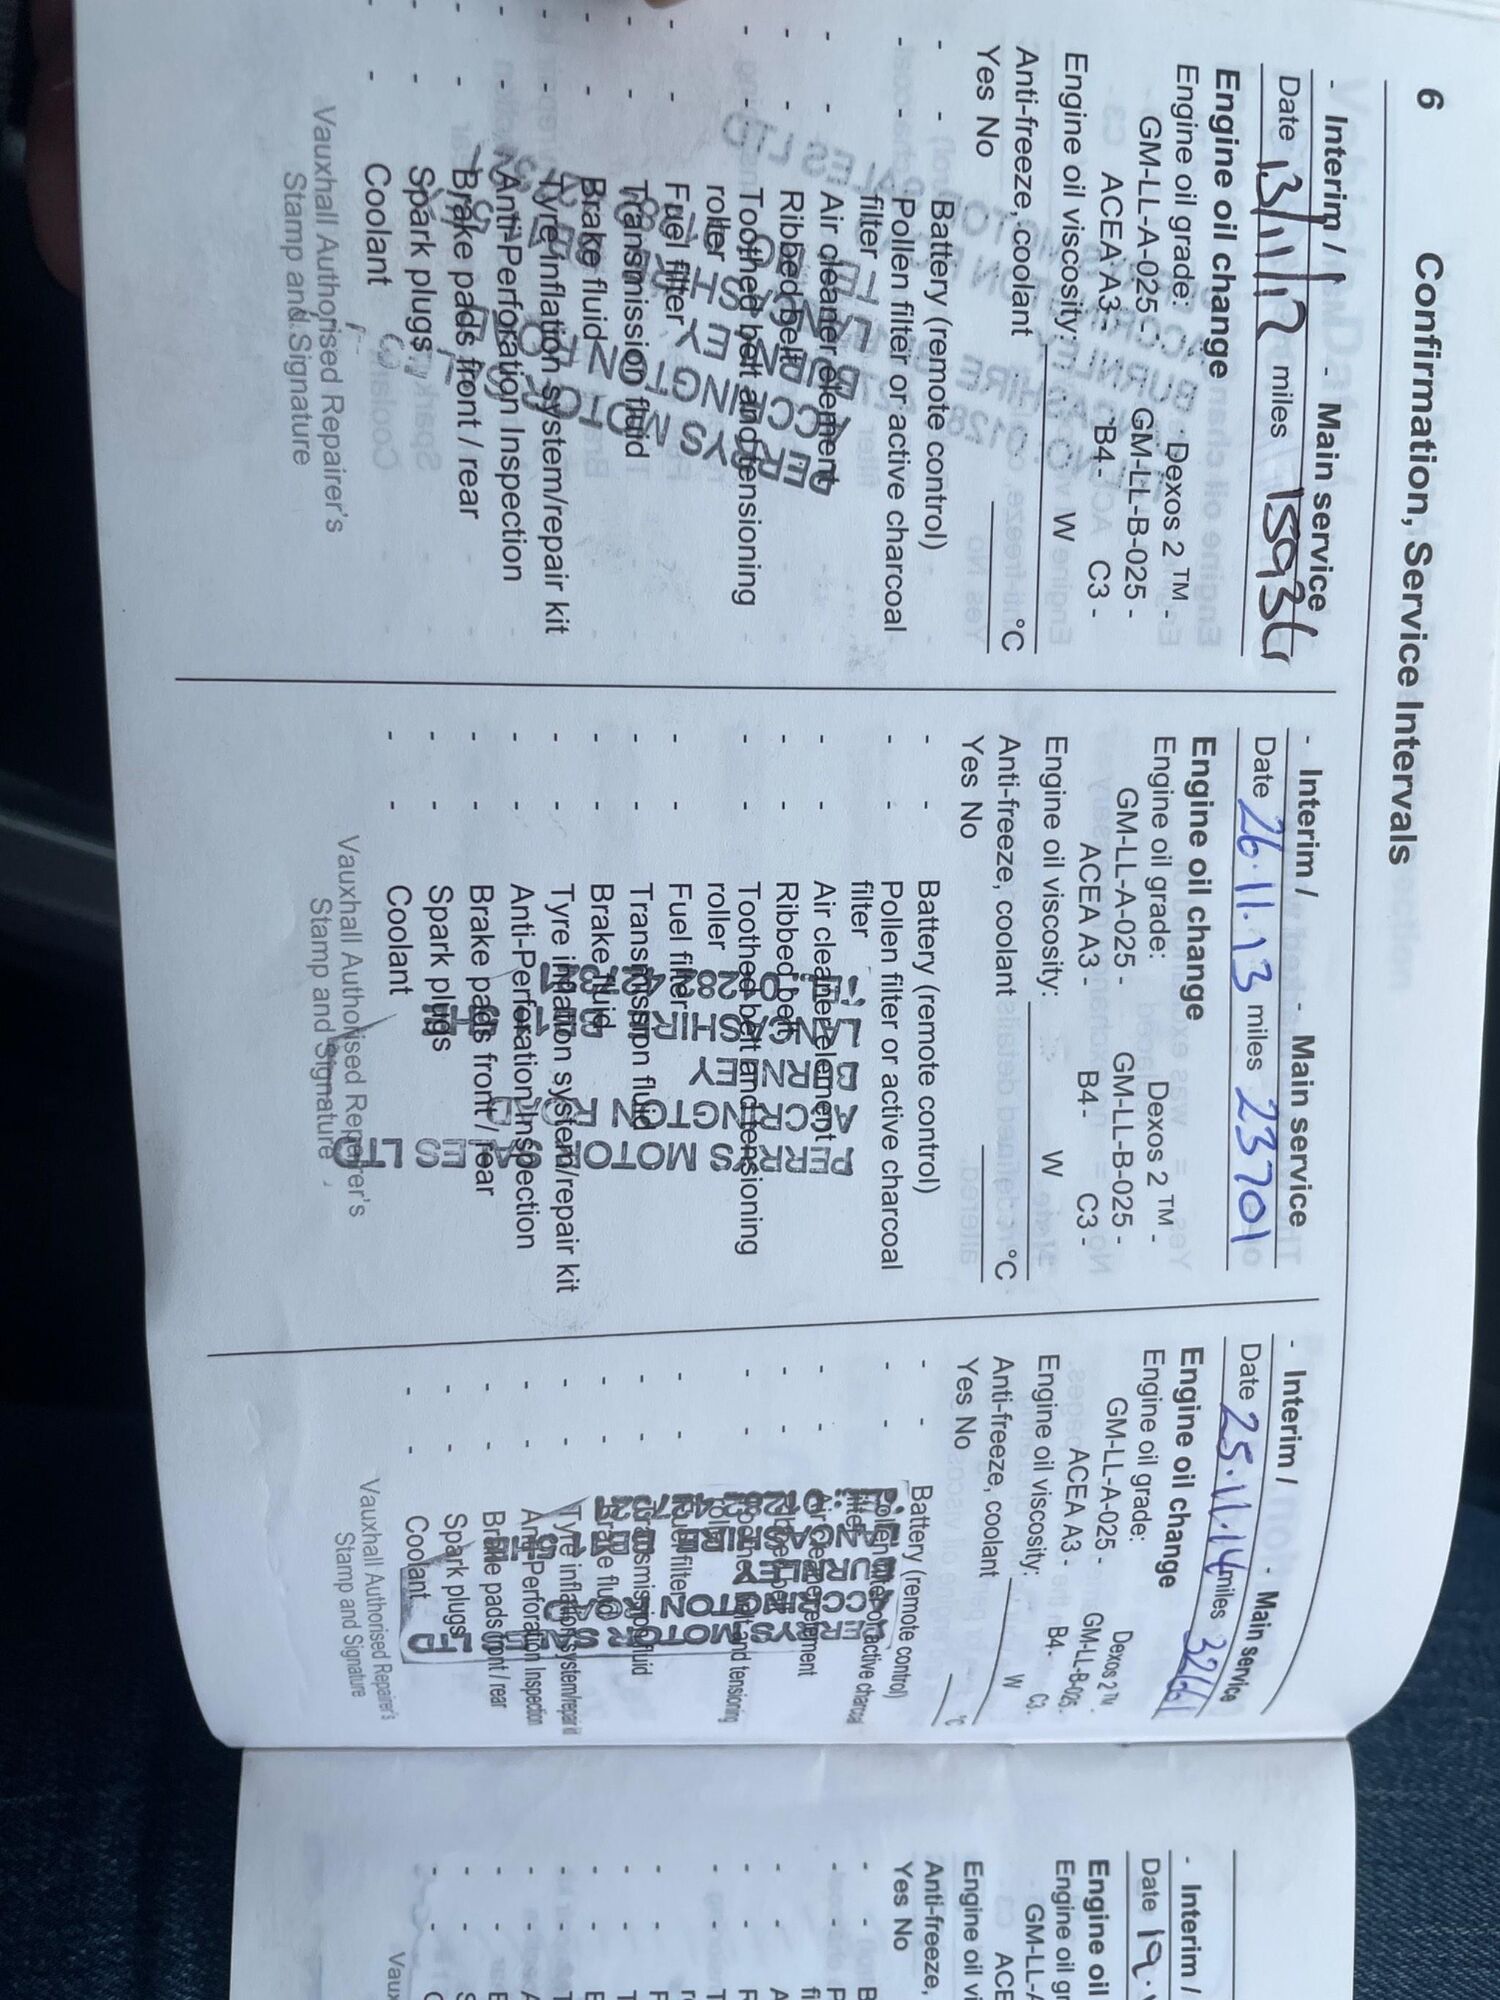 6 Confirmation, Service Intervals
- Interim / - Main service
Date 13/11/12 miles 15936
Engine oil change
Engine oil grade: Dexos 2 ™ -
GM-LL-A-025 - GM-LL-B-025 -
ACEA A3 - B4 - C3 -
Engine oil viscosity: W
Anti-freeze, coolant °C
Yes No
- - Battery (remote control)
- - Pollen filter or active charcoal
filter
- - Air cleaner element
- - Ribbed belt
- - Toothed belt and tensioning
roller
- - Fuel filter
- - Transmission fluid
- - Brake fluid
- - Tyre inflation system/repair kit
- - Anti-Perforation Inspection
- - Brake pads front / rear
- - Spark plugs
- - Coolant
Vauxhall Authorised Repairer's
Stamp and Signature
- Interim / - Main service
Date 26.11.13 miles 23701
Engine oil change
Engine oil grade: Dexos 2 ™ -
GM-LL-A-025 - GM-LL-B-025 -
ACEA A3 - B4 - C3 -
Engine oil viscosity: W
Anti-freeze, coolant °C
Yes No
- - Battery (remote control)
- - Pollen filter or active charcoal
filter
- - Air cleaner element
- - Ribbed belt
- - Toothed belt and tensioning
roller
- - Fuel filter
- - Transmission fluid
- - Brake fluid
- - Tyre inflation system/repair kit
- - Anti-Perforation Inspection
- - Brake pads front / rear
- - Spark plugs
- - Coolant
PERRYS MOTOR SALES LTD
Vauxhall Authorised Repairer's
Stamp and Signature
- Interim / - Main service
Date 25.11.14 miles 32661
Engine oil change
Engine oil grade: Dexos 2 ™ -
GM-LL-A-025 - GM-LL-B-025 -
ACEA A3 - B4 - C3 -
Engine oil viscosity: W
Anti-freeze, coolant °C
Yes No
- - Battery (remote control)
- - Pollen filter or active charcoal
filter
- - Air cleaner element
- - Ribbed belt
- - Toothed belt and tensioning
roller
- - Fuel filter
- - Transmission fluid
- - Brake fluid
- - Tyre inflation system/repair kit
- - Anti-Perforation Inspection
- - Brake pads front / rear
- - Spark plugs
- - Coolant
Vauxhall Authorised Repairer's
Stamp and Signature
- Interim /
Date 19.
Engine oil
Engine oil gr
GM-LL-A
ACE
Engine oil vi
Anti-freeze,
Yes No